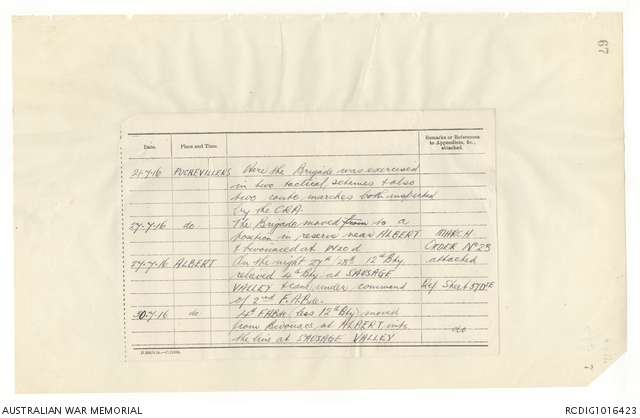 67
Date. Place and Time. Remarks or References to Appendices, &c., attached.
21-7-16 PUCHEVILLERS Here the Brigade was exercised
in two tactical schemes & also
two route marches both inspected
by the C.R.A.
27-7-16 do. The Brigade moved from to a
position in reserve near ALBERT MARCH
& bivouaced at W20d ORDER No 23
attached
27-7-16 ALBERT On the night 27th 28th 12th Bty
relieved 4th Bty at SAUSAGE
VALLEY & came under command Ref Sheet 57D SE
of 2nd F.A.Bde.
30-7-16 do. 4th FABde less 12th Bty moved
from Bivouacs at ALBERT into do
the line at SAUSAGE VALLEY
AUSTRALIAN WAR MEMORIAL
RCDIG1016423